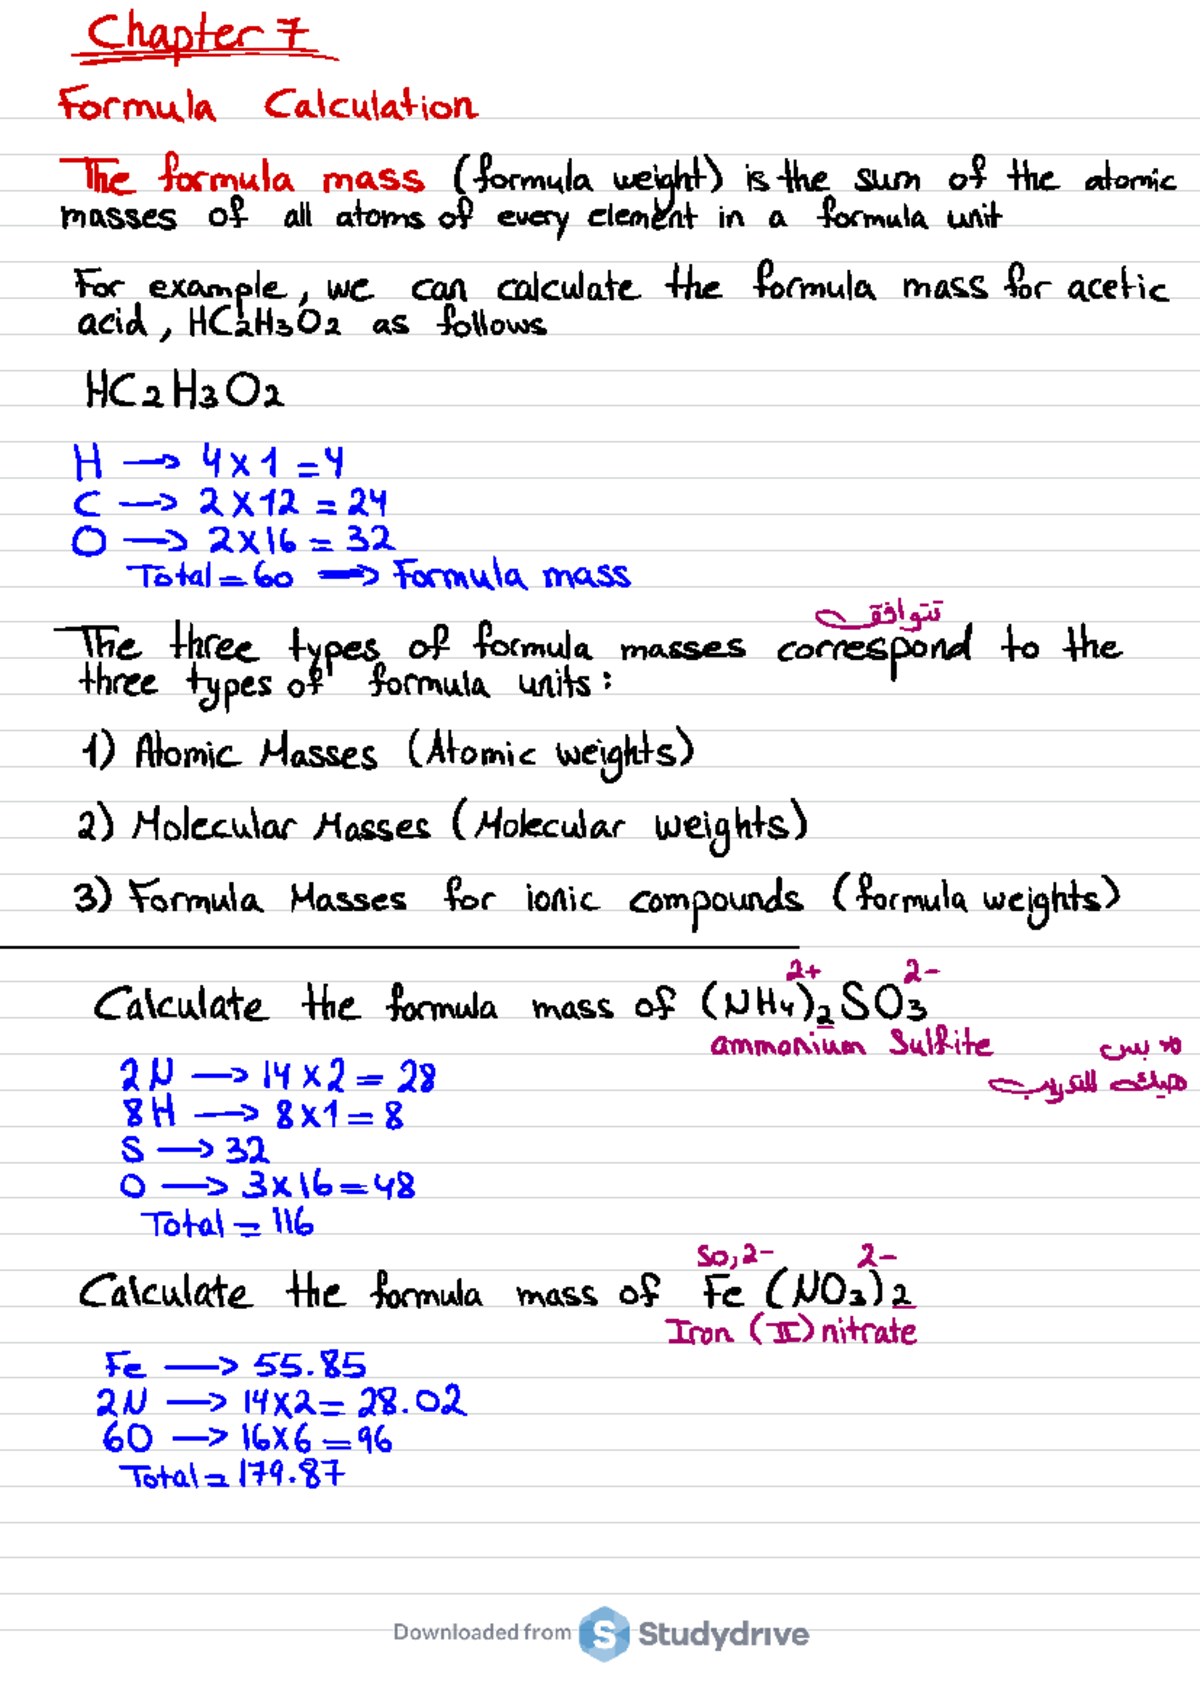 Chapter 7
Formula Calculation
The formula mass (formula weight) is the sum of the atomic
masses of all atoms of every element in a formula unit
For example, we can calculate the formula mass for acetic
acid, HC2H3O2 as follows
HC2H3O2
H → 4x1=4
C → 2x12=24
O → 2x16=32
Total=60 → Formula mass
تتوافق
The three types of formula masses correspond to the
three types of formula units:
1) Atomic Masses (Atomic weights)
2) Molecular Masses (Molecular weights)
3) Formula Masses for ionic compounds (formula weights)
2+ 2-
Calculate the formula mass of (NH4)2SO3
ammonium Sulfite
بس
هيك للتدريب
2N → 14x2=28
8H → 8x1=8
S → 32
O → 3x16=48
Total=116
So, 2- 2-
Calculate the formula mass of Fe(NO3)2
Iron (II) nitrate
Fe → 55.85
2N → 14x2=28.02
6O → 16x6=96
Total=179.87
Downloaded from S Studydrive